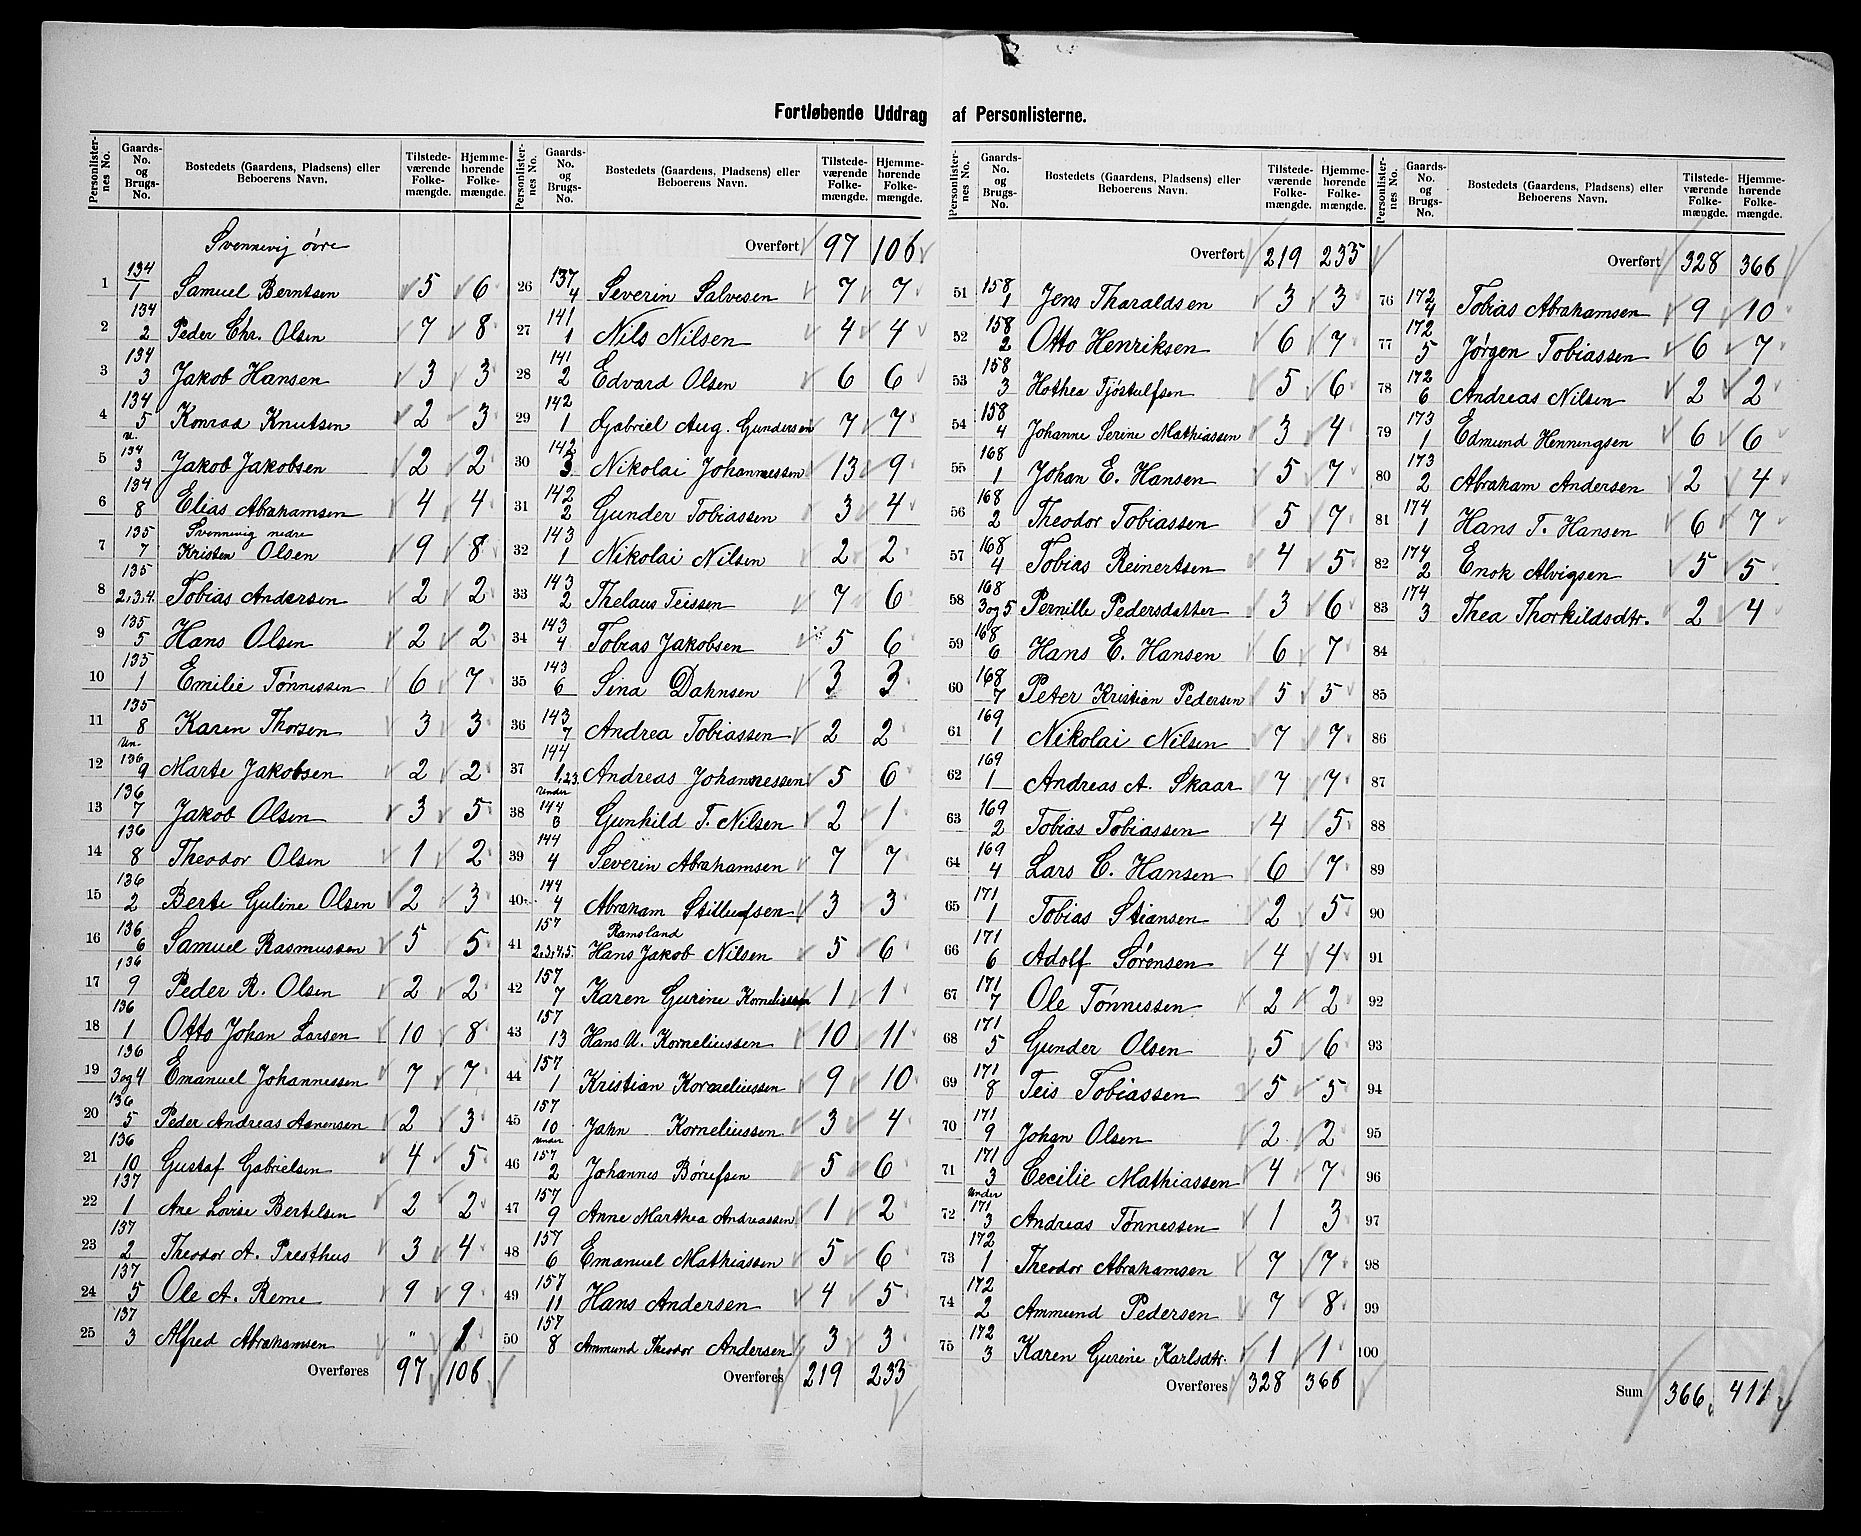 Fortløbende Uddrag af Personlisterne.
Personlister-nes No. | Gaards-No. og Brugs-No. | Bostedets (Gaardens, Pladsens) eller Beboerens Navn. | Tilstede-værende Folke-mængde. | Hjemme-hørende Folke-mængde.
Svennevig øvre
1 134/1 Samuel Berntsen 5 6
2 134/2 Peder Chr. Olsen 7 8
3 134/3 Jakob Hansen 3 3
4 134/5 Konrad Knutsen 2 3
5 u. 134/3 Jakob Jakobsen 2 2
6 134/8 Elias Abrahamsen 4 4
Svennevig nedre
7 135/7 Kristen Olsen 9 8
8 135/2,3,4. Tobias Andersen 2 2
9 135/5 Hans Olsen 2 2
10 135/1 Emilie Tønnessen 6 7
11 135/8 Karen Thorsen 3 3
12 Un. 136/9 Marte Jakobsen 2 2
13 136/7 Jakob Olsen 3 5
14 136/8 Theodor Olsen 1 2
15 136/2 Berte Guline Olsen 2 3
16 136/6 Samuel Rasmussen 5 5
17 136/9 Peder R. Olsen 2 2
18 136/1 Otto Johan Larsen 10 8
19 136/3 og 4 Emanuel Johannessen 7 7
20 136/5 Peder Andreas Aanensen 2 3
21 136/10 Gustaf Gabrielsen 4 5
22 137/1 Ane Lovise Bertelsen 2 2
23 137/2 Theodor A. Presthus 3 4
24 137/5 Ole A. Reme 9 9
25 137/3 Alfred Abrahamsen " 1
Overføres 97 106
Personlister-nes No. | Gaards-No. og Brugs-No. | Bostedets (Gaardens, Pladsens) eller Beboerens Navn. | Tilstede-værende Folke-mængde. | Hjemme-hørende Folke-mængde.
Overført 97 106
26 137/4 Severin Salvesen 7 7
27 141/1 Nils Nilsen 4 4
28 141/2 Edvard Olsen 6 6
29 142/1 Gabriel Aug. Gundersen 7 7
30 142/3 Nikolai Johannessen 13 9
31 142/2 Gunder Tobiassen 3 4
32 143/1 Nikolai Nilsen 2 2
33 143/2 Thelaus Teissen 7 6
34 143/4 Tobias Jakobsen 5 6
35 143/6 Sina Dahnsen 3 3
36 143/7 Andrea Tobiassen 2 2
37 144/1.2.3. Andreas Johannessen 5 6
38 Under 144/3 Gunhild T. Nilsen 2 1
39 144/4 Severin Abrahamsen 7 7
40 144/4 Abraham Stillufsen 3 3
Ramsland
41 157/2.3.4.5. Hans Jakob Nilsen 5 6
42 157/7 Karen Gurine Korneliussen 1 1
43 157/13 Hans U. Korneliussen 10 11
44 157/1 Kristian Korneliussen 9 10
45 157/10 Jahn Korneliussen 3 4
46 Under 157/2 Johannes Børufsen 5 6
47 157/9 Anne Marthea Andreassen 1 2
48 157/6 Emanuel Mathiassen 5 6
49 157/11 Hans Andersen 4 5
50 157/8 Ammund Theodor Andersen 3 3
Overføres 219 233
Personlister-nes No. | Gaards-No. og Brugs-No. | Bostedets (Gaardens, Pladsens) eller Beboerens Navn. | Tilstede-værende Folke-mængde. | Hjemme-hørende Folke-mængde.
Overført 219 233
51 158/1 Jens Tharaldsen 3 3
52 158/2 Otto Henriksen 6 7
53 158/3 Hothea Tjøstulfsen 5 6
54 158/4 Johanne Serine Mathiassen 3 4
55 168/1 Johan E. Hansen 5 7
56 168/2 Theodor Tobiassen 5 7
57 168/4 Tobias Reinertsen 4 5
58 168/3 og 5 Pernille Pedersdatter 3 6
59 168/6 Hans E. Hansen 6 7
60 168/7 Peter Kristian Pedersen 5 5
61 169/1 Nikolai Nilsen 7 7
62 169/1 Andreas A. Skaar 7 7
63 169/2 Tobias Tobiassen 4 5
64 169/4 Lars C. Hansen 6 7
65 171/1 Tobias Stiansen 2 5
66 171/6 Adolf Sørensen 4 4
67 171/7 Ole Tønnessen 2 2
68 171/5 Gunder Olsen 5 6
69 171/8 Teis Tobiassen 5 5
70 171/9 Johan Olsen 2 2
71 171/3 Cecilie Mathiassen 4 7
72 Under 171/3 Andreas Tønnessen 1 3
73 172/1 Theodor Abrahamsen 7 7
74 172/2 Ammund Pedersen 7 8
75 172/3 Karen Gurine Karlsdtr. 1 1
Overføres 328 366
Personlister-nes No. | Gaards-No. og Brugs-No. | Bostedets (Gaardens, Pladsens) eller Beboerens Navn. | Tilstede-værende Folke-mængde. | Hjemme-hørende Folke-mængde.
Overført 328 366
76 172/4 Tobias Abrahamsen 9 10
77 172/5 Jørgen Tobiassen 6 7
78 172/6 Andreas Nilsen 2 2
79 173/1 Edmund Henningsen 6 6
80 173/2 Abraham Andersen 2 4
81 174/1 Hans T. Hansen 6 7
82 174/2 Enok Alvigsen 5 5
83 174/3 Thea Thorkildsdtr. 2 4
84
85
86
87
88
89
90
91
92
93
94
95
96
97
98
99
100
Sum 366 411